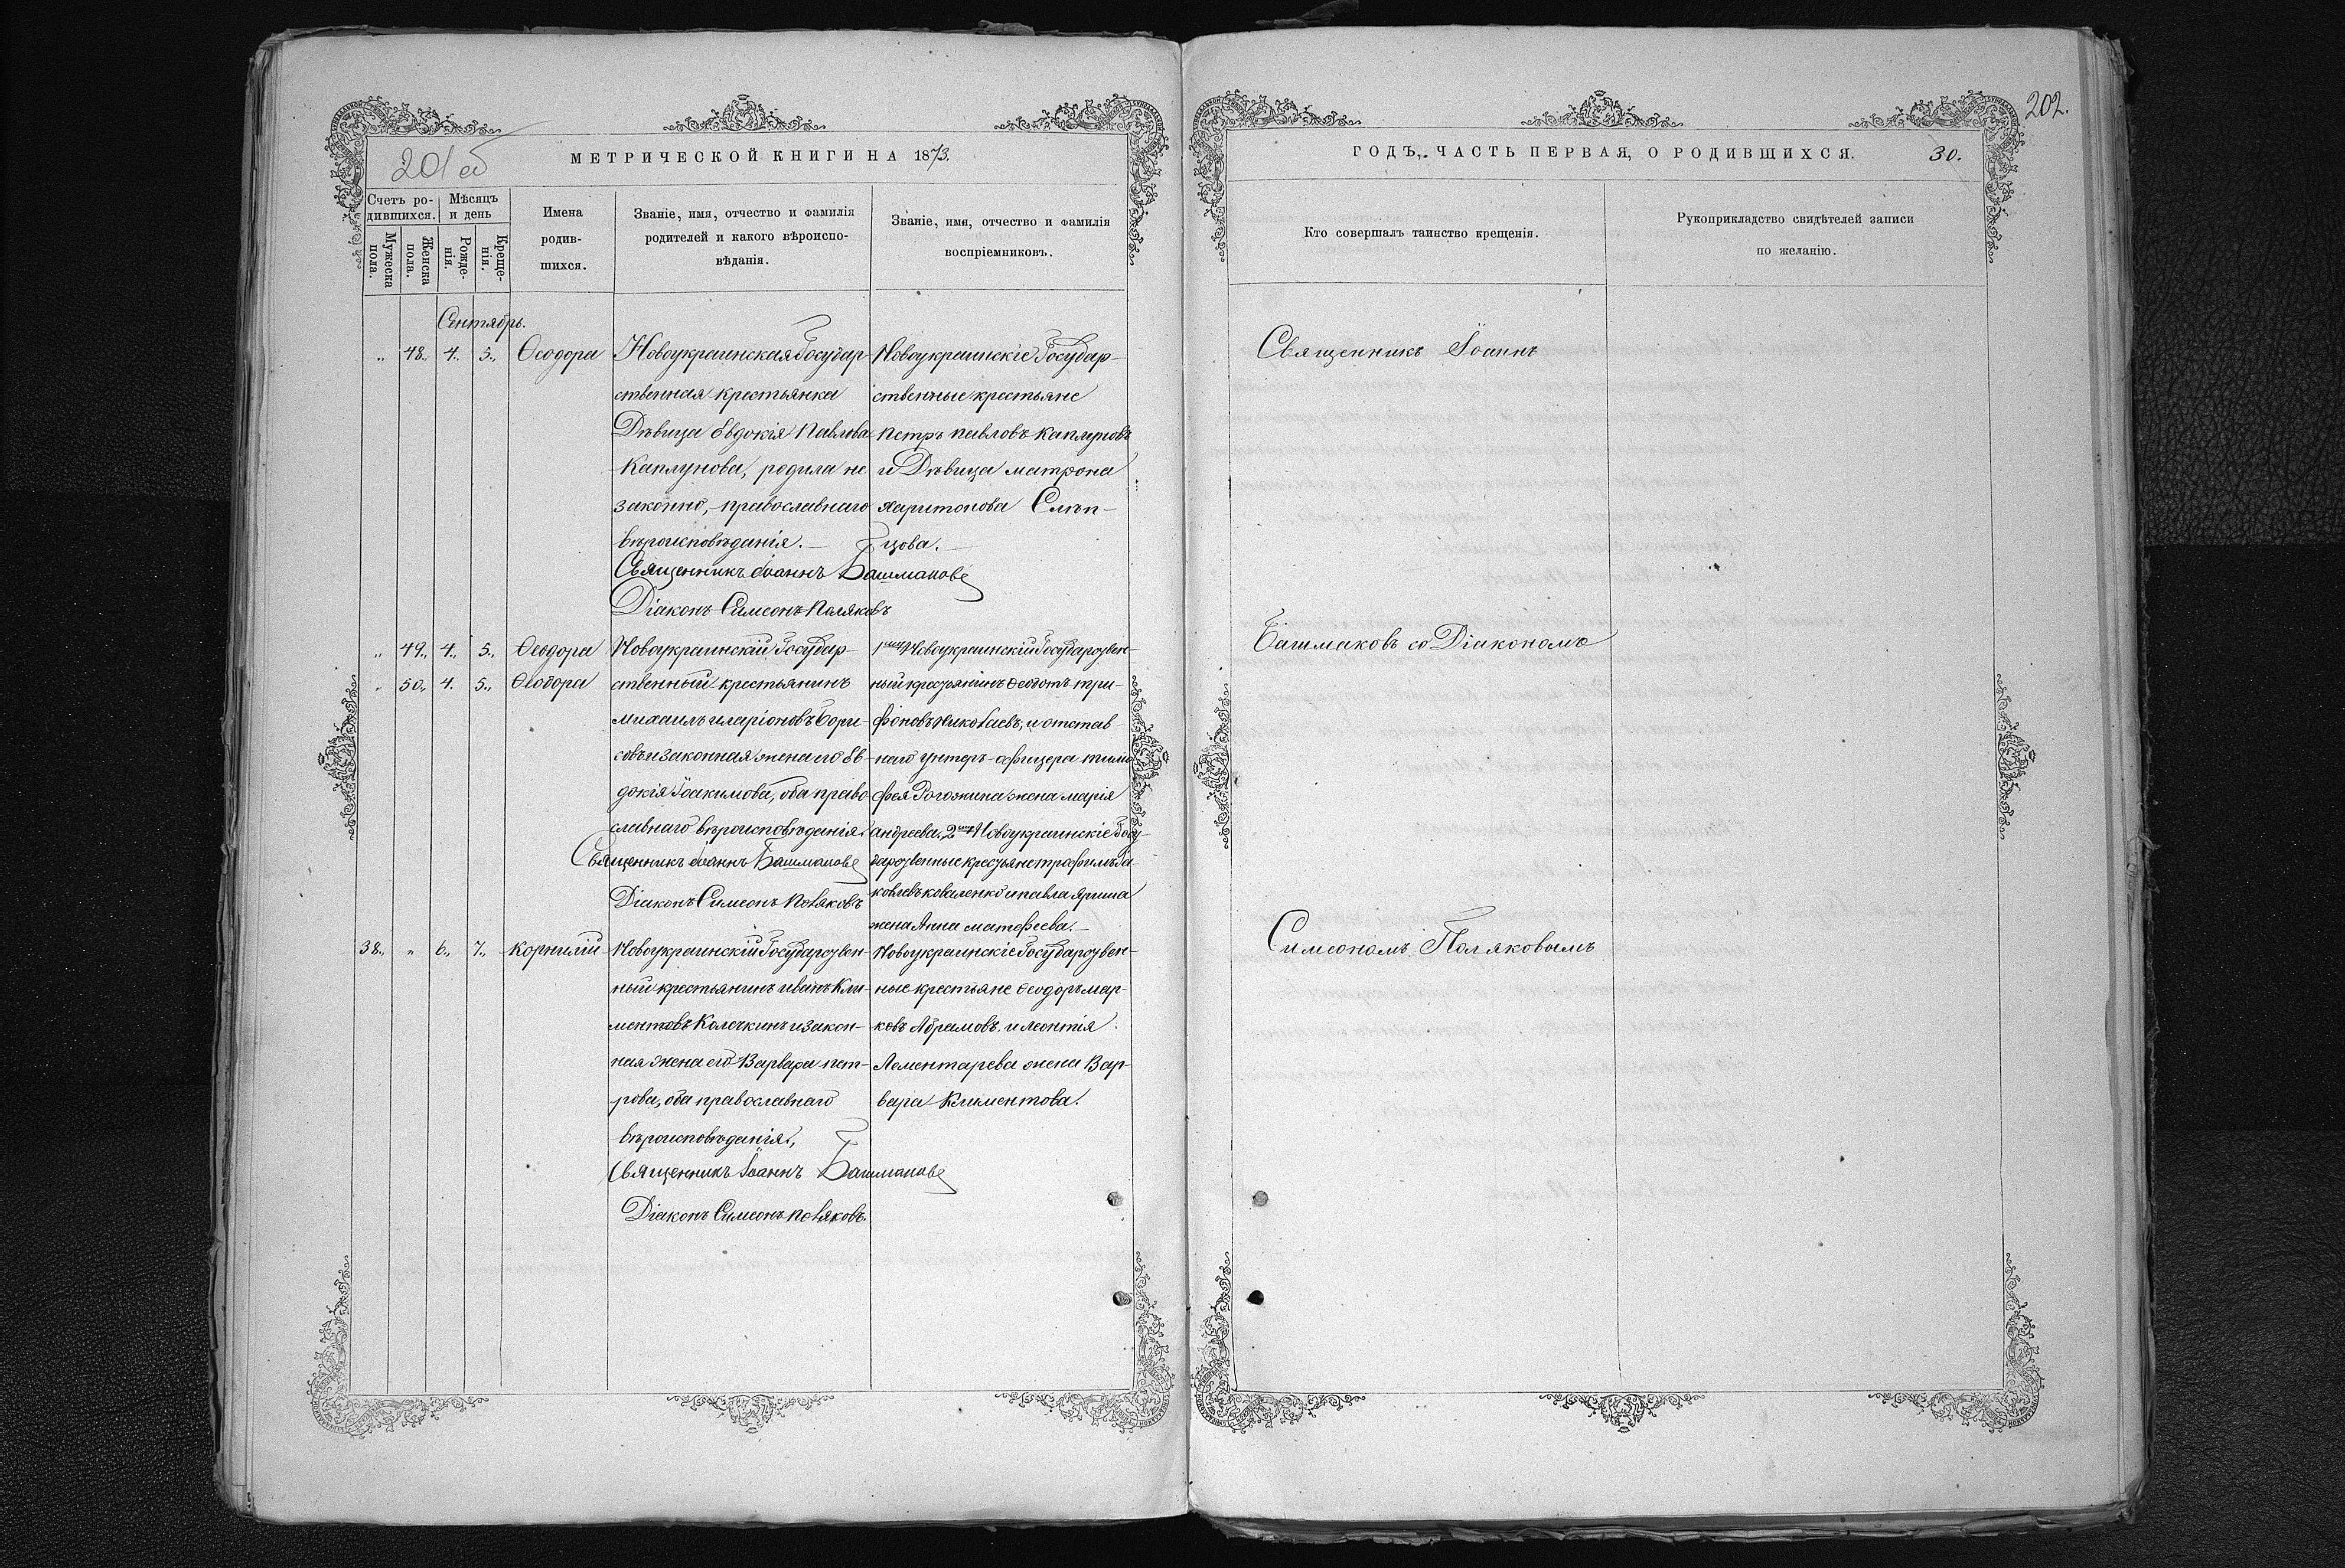 201 об
МЕТРИЧЕСКОЙ КНИГИ НА 1873.
Счетъ ро-
дившихся.
Мѣсяцъ
и день
Мужеска
пола.
Женска
пола.
Рожде-
нія.
Креще-
нія.
Имена
родив-
шихся.
Званіе, имя, отчество и фамилія
родителей и какого вѣроиспо-
вѣданія.
Званіе, имя, отчество и фамилія
воспріемниковъ.
Сентябрь.
„ 48„ 4„ 5„ Ѳеодора
Новоукраинская Государ-
ственная крестьянка
Дѣвица Евдокія Павлова
Каплунова, родила не
законно, православнаго
вѣроисповѣданія.
Священникъ Іоаннъ Башмаковъ
Діаконъ Симеонъ Поляковъ
Новоукраинскіе Государ-
ственные крестьяне
Петръ Павловъ Каплуновъ
и Дѣвица Матрона
Харитонова Слѣп-
цова.
„ 49„ 4„ 5„ Ѳеодора
„ 50„ 4. 5„ Ѳеодора
Новоукраинскій Государ-
ственный крестьянинъ
Михаилъ Иларіоновъ Бори-
совъ и законная жена его Ев-
докія Іоакимова, оба право-
славнаго вѣроисповѣданія.
Священникъ Іоаннъ Башмаковъ
Діаконъ Симеонъ Поляковъ
1й Новоукраинскій Государствен-
ный крестьянинъ Ѳеодотъ Три-
фоновъ Николаевъ, и отстав-
наго унтеръ-офицера Тимо
фея Рогожина жена Марія
Андреева. 2й Новоукраинскіе Госу-
дарственные крестьяне Трофимъ Іа-
ковлевъ Коваленко и Павла Яриша
жена Анна Матѳеева.
38„ „ 6„ 7„ Корнилій
Новоукраинскій Государствен-
ный крестьянинъ Иванъ Кли-
ментовъ Колечкинъ и закон-
ная жена его Варвара Пет-
рова, оба православнаго
вѣроисповѣданія,
Священникъ Іоаннъ Башмаковъ
Діаконъ Симеонъ Поляковъ.
Новоукраинскіе Государствен-
ные крестьяне Ѳеодоръ Мар-
ковъ Абрамовъ и Леонтія
Лементарева жена Вар-
вара Климентова.
202.
ГОДЪ, ЧАСТЬ ПЕРВАЯ, О РОДИВШИХСЯ.
30.
Кто совершалъ таинство крещенія.
Рукоприкладство свидѣтелей записи
по желанію.
Священникъ Іоаннъ
Башмаковъ со Діакономъ
Симеономъ Поляковымъ